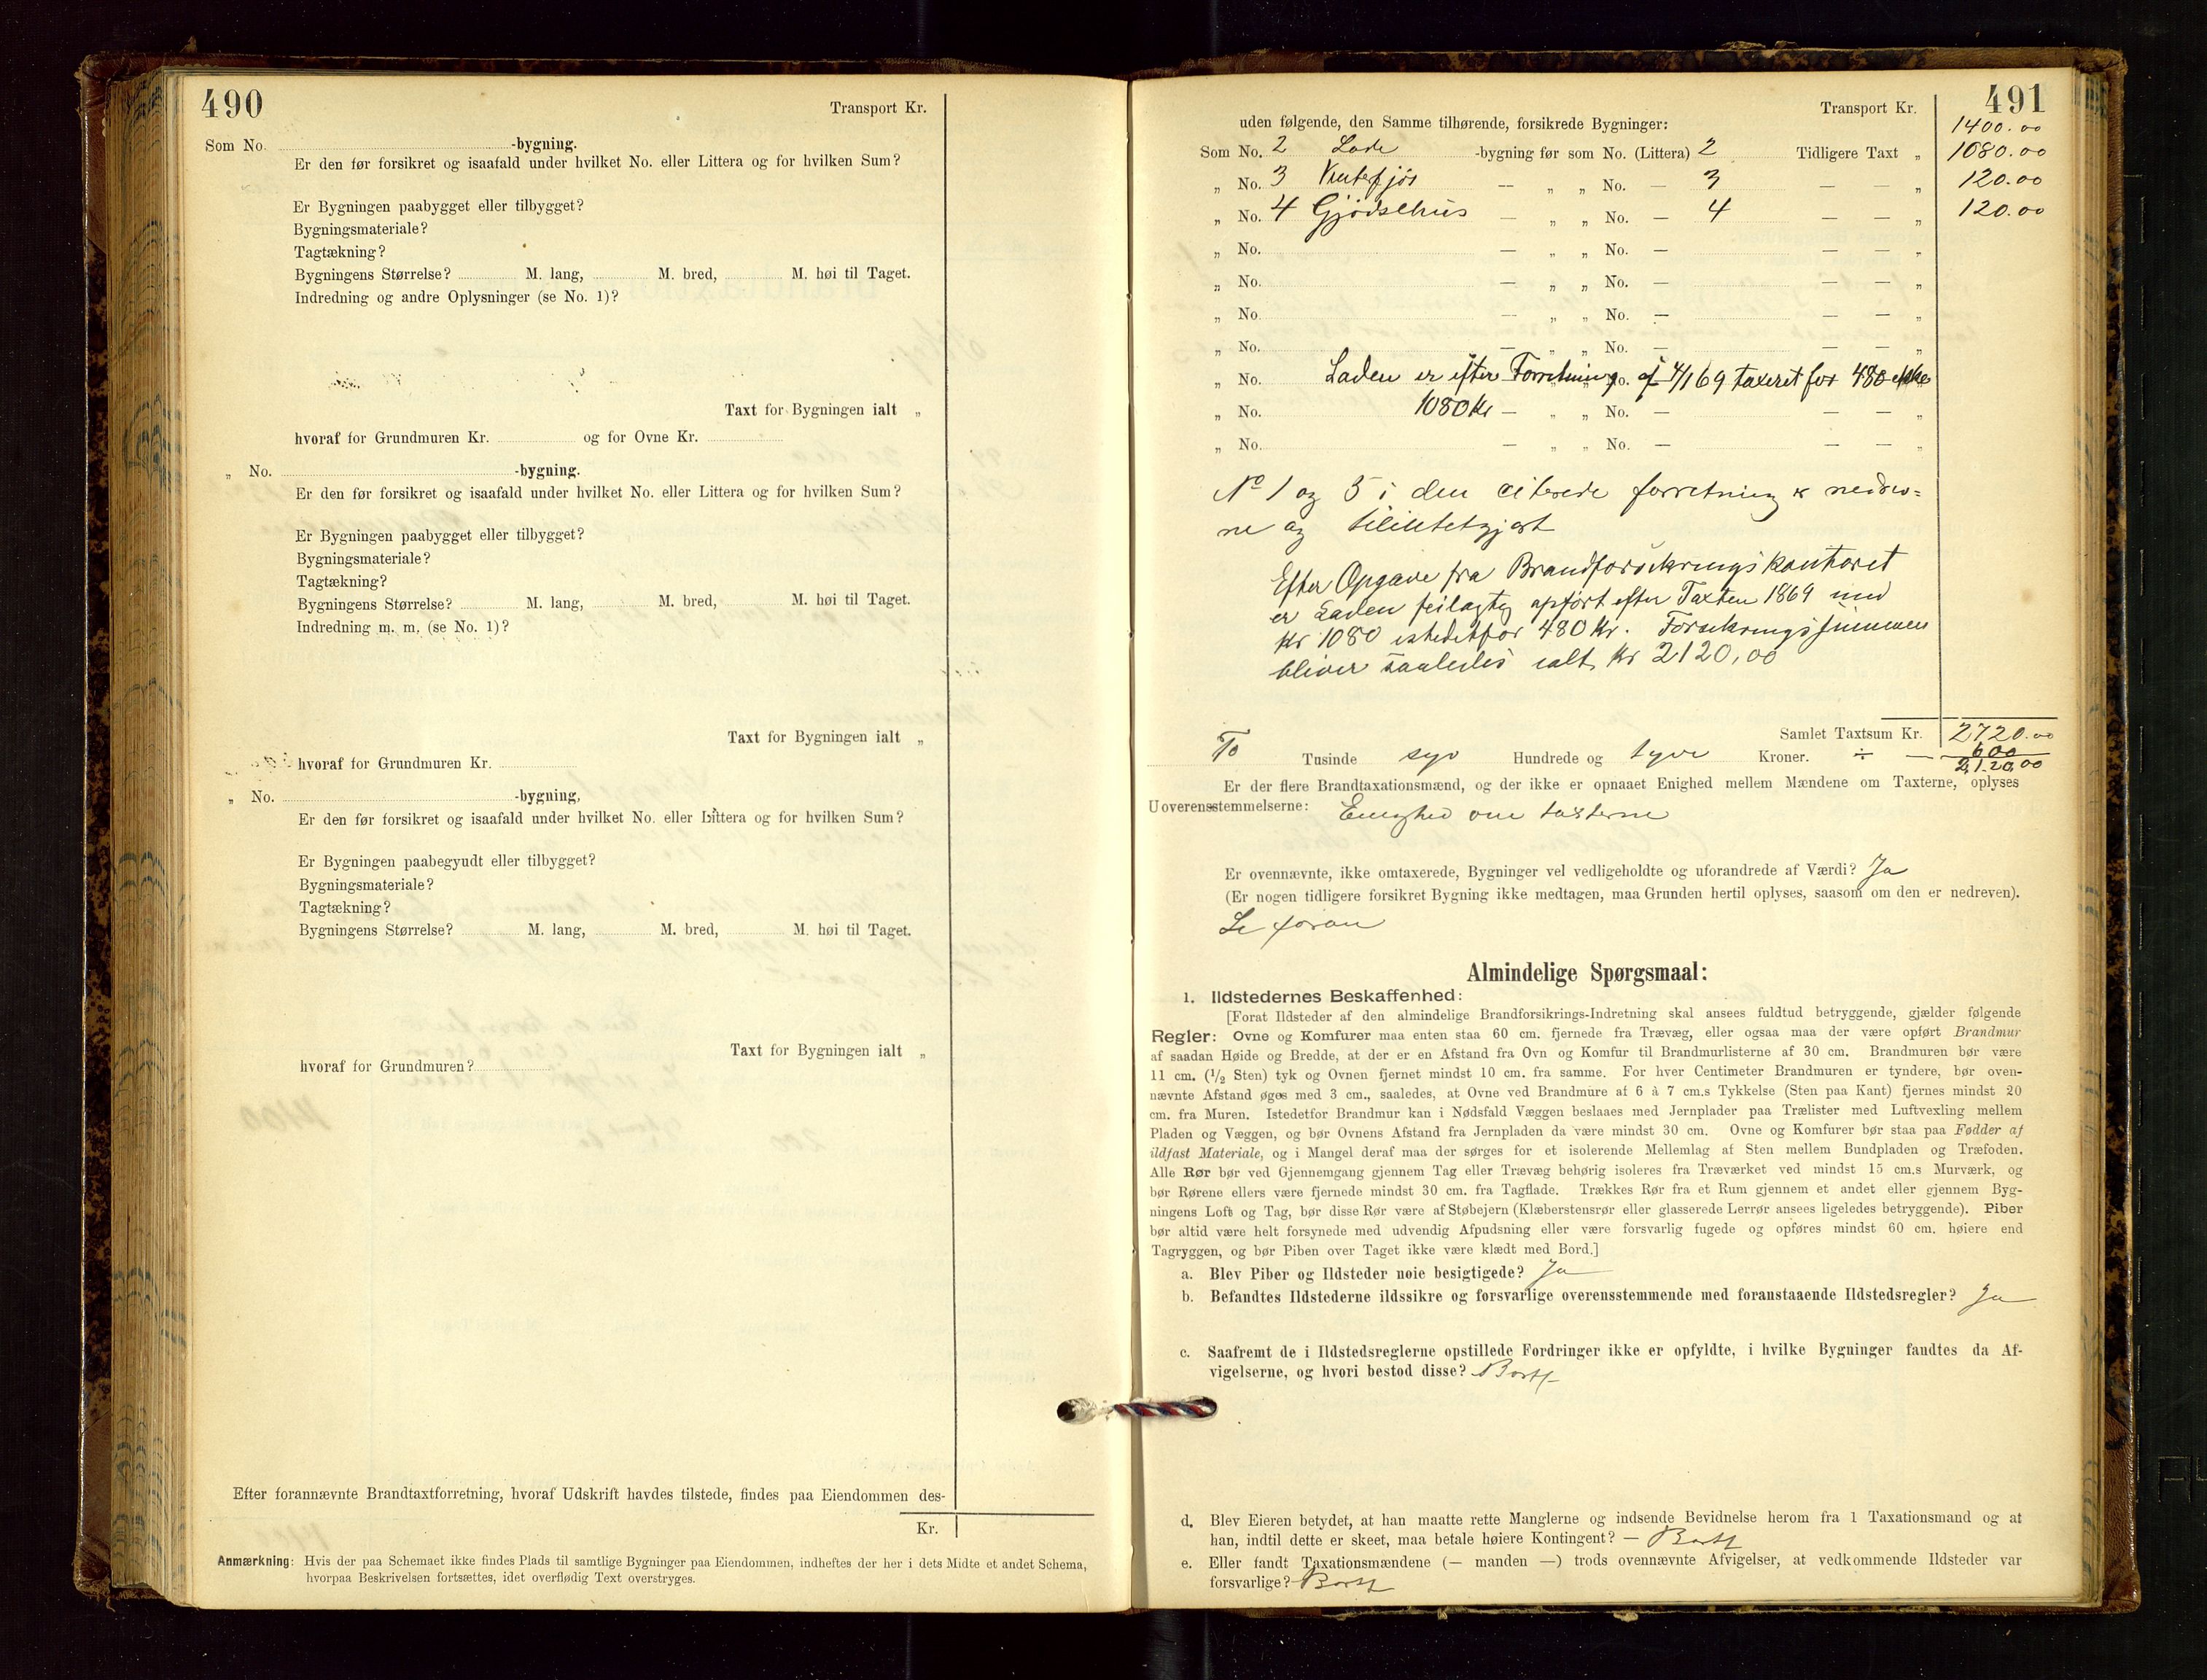 490
Transport Kr.
Som No. -bygning.
Er den før forsikret og isaafald under hvilket No. eller Littera og for hvilken Sum?
Er Bygningen paabygget eller tilbygget?
Bygningsmateriale?
Tagtækning?
Bygningens Størrelse? M. lang, M. bred, M. høi til Taget.
Indredning og andre Oplysninger (se No. 1)?
Taxt for Bygningen ialt „
hvoraf for Grundmuren Kr. og for Ovne Kr.
„ No. -bygning.
Er den før forsikret og isaafald under hvilket No. eller Littera og for hvilken Sum?
Er Bygningen paabygget eller tilbygget?
Bygningsmateriale?
Tagtækning?
Bygningens Størrelse? M. lang, M. bred, M. høi til Taget.
Indredning m. m. (se No. 1)?
Taxt for Bygningen ialt „
hvoraf for Grundmuren Kr.
„ No. -bygning,
Er den før forsikret og isaafald under hvilket No. eller Littera og for hvilken Sum?
Er Bygningen paabegyudt eller tilbygget?
Bygningsmateriale?
Tagtækning?
Bygningens Størrelse? M. lang, M. bred, M. høi til Taget.
Taxt for Bygningen ialt „
hvoraf for Grundmuren?
Efter forannævnte Brandtaxtforretning, hvoraf Udskrift havdes tilstede, findes paa Eiendommen des-
Kr.
Anmærkning: Hvis der paa Schemaet ikke findes Plads til samtlige Bygninger paa Eiendommen, indheftes der her i dets Midte et andet Schema,
hvorpaa Beskrivelsen fortsættes, idet overflødig Text overstryges.
491
Transport Kr. 1400.00
uden følgende, den Samme tilhørende, forsikrede Bygninger:
Som No. 2 Lade -bygning før som No. (Littera) 2 Tidligere Taxt „ 1080.00
„ No. 3 Vinterfjøs — „ „ No. — 3 — — „ 120.00
„ No. 4 Gjødselhus — „ „ No. — 4 — — „ 120.00
„ No. — „ „ No. — — — „
„ No. — „ „ No. — — — „
„ No. — „ „ No. — — — „
„ No. — „ „ No. — — — „
„ No. Laden er efter Forretning af 4/1 69 taxeret for 480 ikke
„ No. 1080 Kr — „ „ No. — — — „
„ No. — „ „ No. — — — „
No 1 og 5 i den citerede forretning er nedrev=
ne og tilintetgjort
Efter Opgave fra Brandforsikringskontoret
er Laden feilagtig opført efter Taxten 1869 med
Kr 1080 istedetfor 480 Kr. Forsikringssummen
bliver saaledes ialt Kr 2120,00
Samlet Taxtsum Kr. 2720.00
To Tusinde syv Hundrede og tyve Kroner. ÷ — 600
2,120,00
Er der flere Brandtaxationsmænd, og der ikke er opnaaet Enighed mellem Mændene om Taxterne, oplyses
Uoverensstemmelserne: Enighed om taxterne
Er ovennævnte, ikke omtaxerede, Bygninger vel vedligeholdte og uforandrede af Værdi? Ja
(Er nogen tidligere forsikret Bygning ikke medtagen, maa Grunden hertil oplyses, saasom om den er nedreven).
Se foran
Almindelige Spørgsmaal:
1. Ildstedernes Beskaffenhed:
[Forat Ildsteder af den almindelige Brandforsikrings-Indretning skal ansees fuldtud betryggende, gjælder følgende
Regler: Ovne og Komfurer maa enten staa 60 cm. fjernede fra Trævæg, eller ogsaa maa der være opført Brandmur
af saadan Høide og Bredde, at der er en Afstand fra Ovn og Komfur til Brandmurlisterne af 30 cm. Brandmuren bør være
11 cm. (1/2 Sten) tyk og Ovnen fjernet mindst 10 cm. fra samme. For hver Centimeter Brandmuren er tyndere, bør oven-
nævnte Afstand øges med 3 cm., saaledes, at Ovne ved Brandmure af 6 à 7 cm.s Tykkelse (Sten paa Kant) fjernes mindst 20
cm. fra Muren. Istedetfor Brandmur kan i Nødsfald Væggen beslaaes med Jernplader paa Trælister med Luftvexling mellem
Pladen og Væggen, og bør Ovnens Afstand fra Jernpladen da være mindst 30 cm. Ovne og Komfurer bør staa paa Fødder af
ildfast Materiale, og i Mangel deraf maa der sørges for et isolerende Mellemlag af Sten mellem Bundpladen og Træfoden.
Alle Rør bør ved Gjennemgang gjennem Tag eller Trævæg behørig isoleres fra Træværket ved mindst 15 cm.s Murværk, og
bør Rørene ellers være fjernede mindst 30 cm. fra Tagflade. Trækkes Rør fra et Rum gjennem et andet eller gjennem Byg-
ningens Loft og Tag, bør disse Rør være af Støbejern (Klæberstensrør eller glasserede Lerrør ansees ligeledes betryggende). Piber
bør altid være helt forsynede med udvendig Afpudsning eller være forsvarlig fugede og opføres mindst 60 cm. høiere end
Tagryggen, og bør Piben over Taget ikke være klædt med Bord.]
a. Blev Piber og Ildsteder nøie besigtigede? Ja
b. Befandtes Ildstederne ildssikre og forsvarlige overensstemmende med foranstaaende Ildstedsregler? Ja
c. Saafremt de i Ildstedsreglerne opstillede Fordringer ikke er opfyldte, i hvilke Bygninger fandtes da Af-
vigelserne, og hvori bestod disse? Bortf
d. Blev Eieren betydet, at han maatte rette Manglerne og indsende Bevidnelse herom fra 1 Taxationsmand og at
han, indtil dette er skeet, maa betale høiere Kontingent? — Bortf
e. Eller fandt Taxationsmændene (— manden —) trods ovennævnte Afvigelser, at vedkommende Ildsteder var
forsvarlige? Bortf